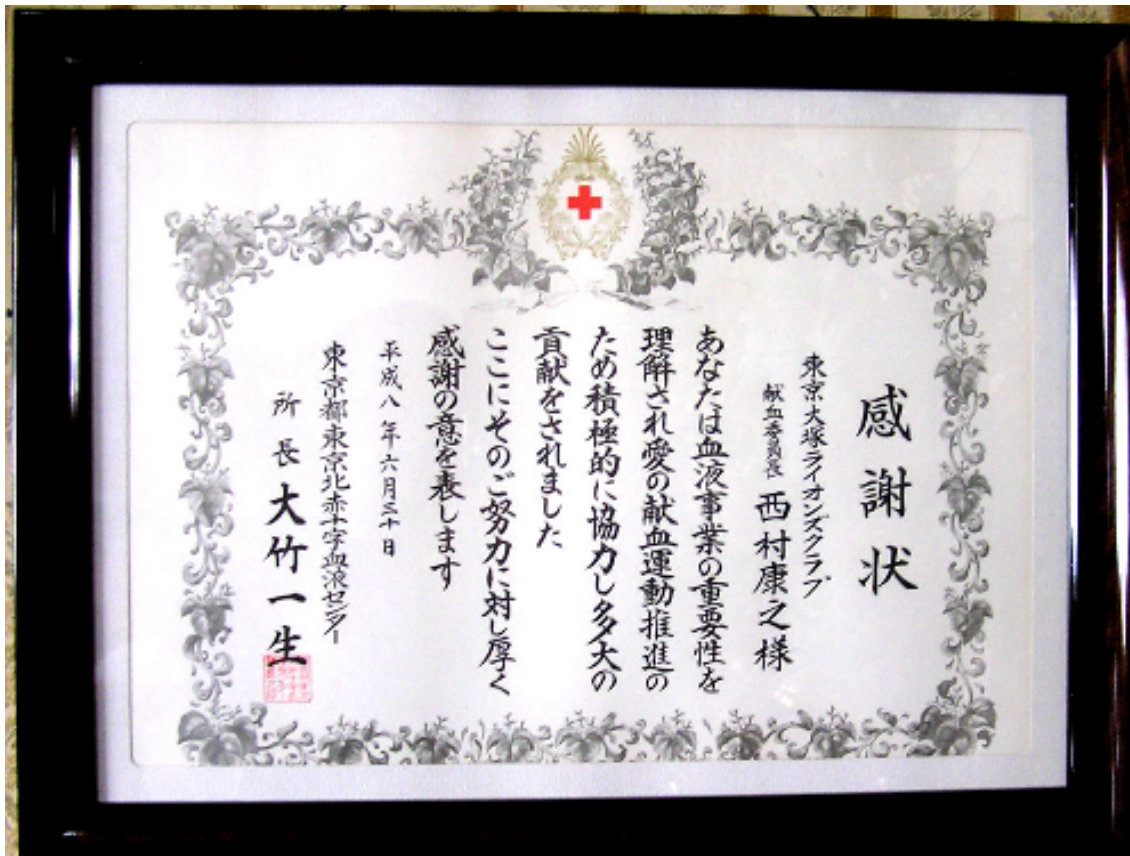 感謝状
東京大塚ライオンズクラブ
献血委員長 西村康之様
あなたは血液事業の重要性を
理解され愛の献血運動推進の
ため積極的に協力し多大の
貢献をされました
ここにそのご努力に対し厚く
感謝の意を表します
平成八年六月三十日
東京都東京北赤十字血液センター
所長 大竹一生